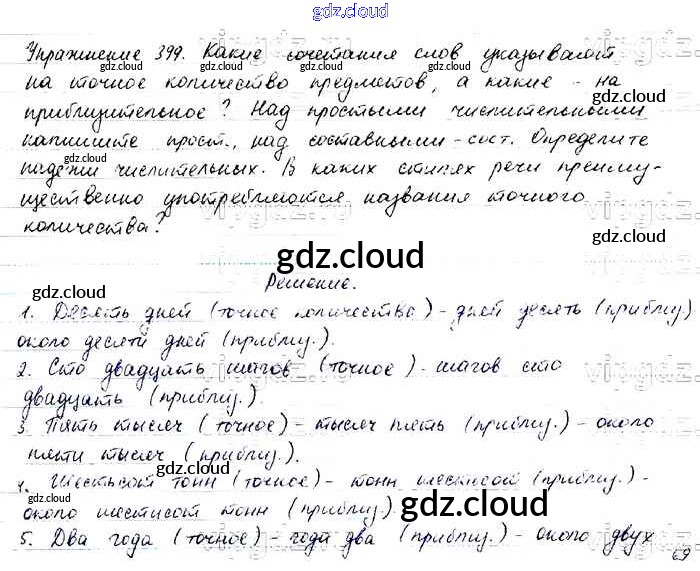 gdz.cloud
Упражнение 399. Какие сочетания слов указывают
на точное количество предметов, а какие - на
приблизительное? Над простыми числительными
напишите прост., над составными - сост. Определите
падежи числительных. В каких стилях речи преиму-
щественно употребляются названия точного
количества?
gdz.cloud
Решение.
1. Десять дней (точное количество) - дней десять (приблиз.)
около десяти дней (приблиз.).
2. Сто двадцать шагов (точное) - шагов сто
двадцать (приблиз.).
3. Пять тысяч (точное) - тысяч пять (приблиз.) - около
пяти тысяч (приблиз.).
4. Шестьсот тонн (точное) - тонн шестьсот (приблиз.) -
около шестисот тонн (приблиз.).
gdz.cloud
5. Два года (точное) - года два (приблиз.) - около двух
69